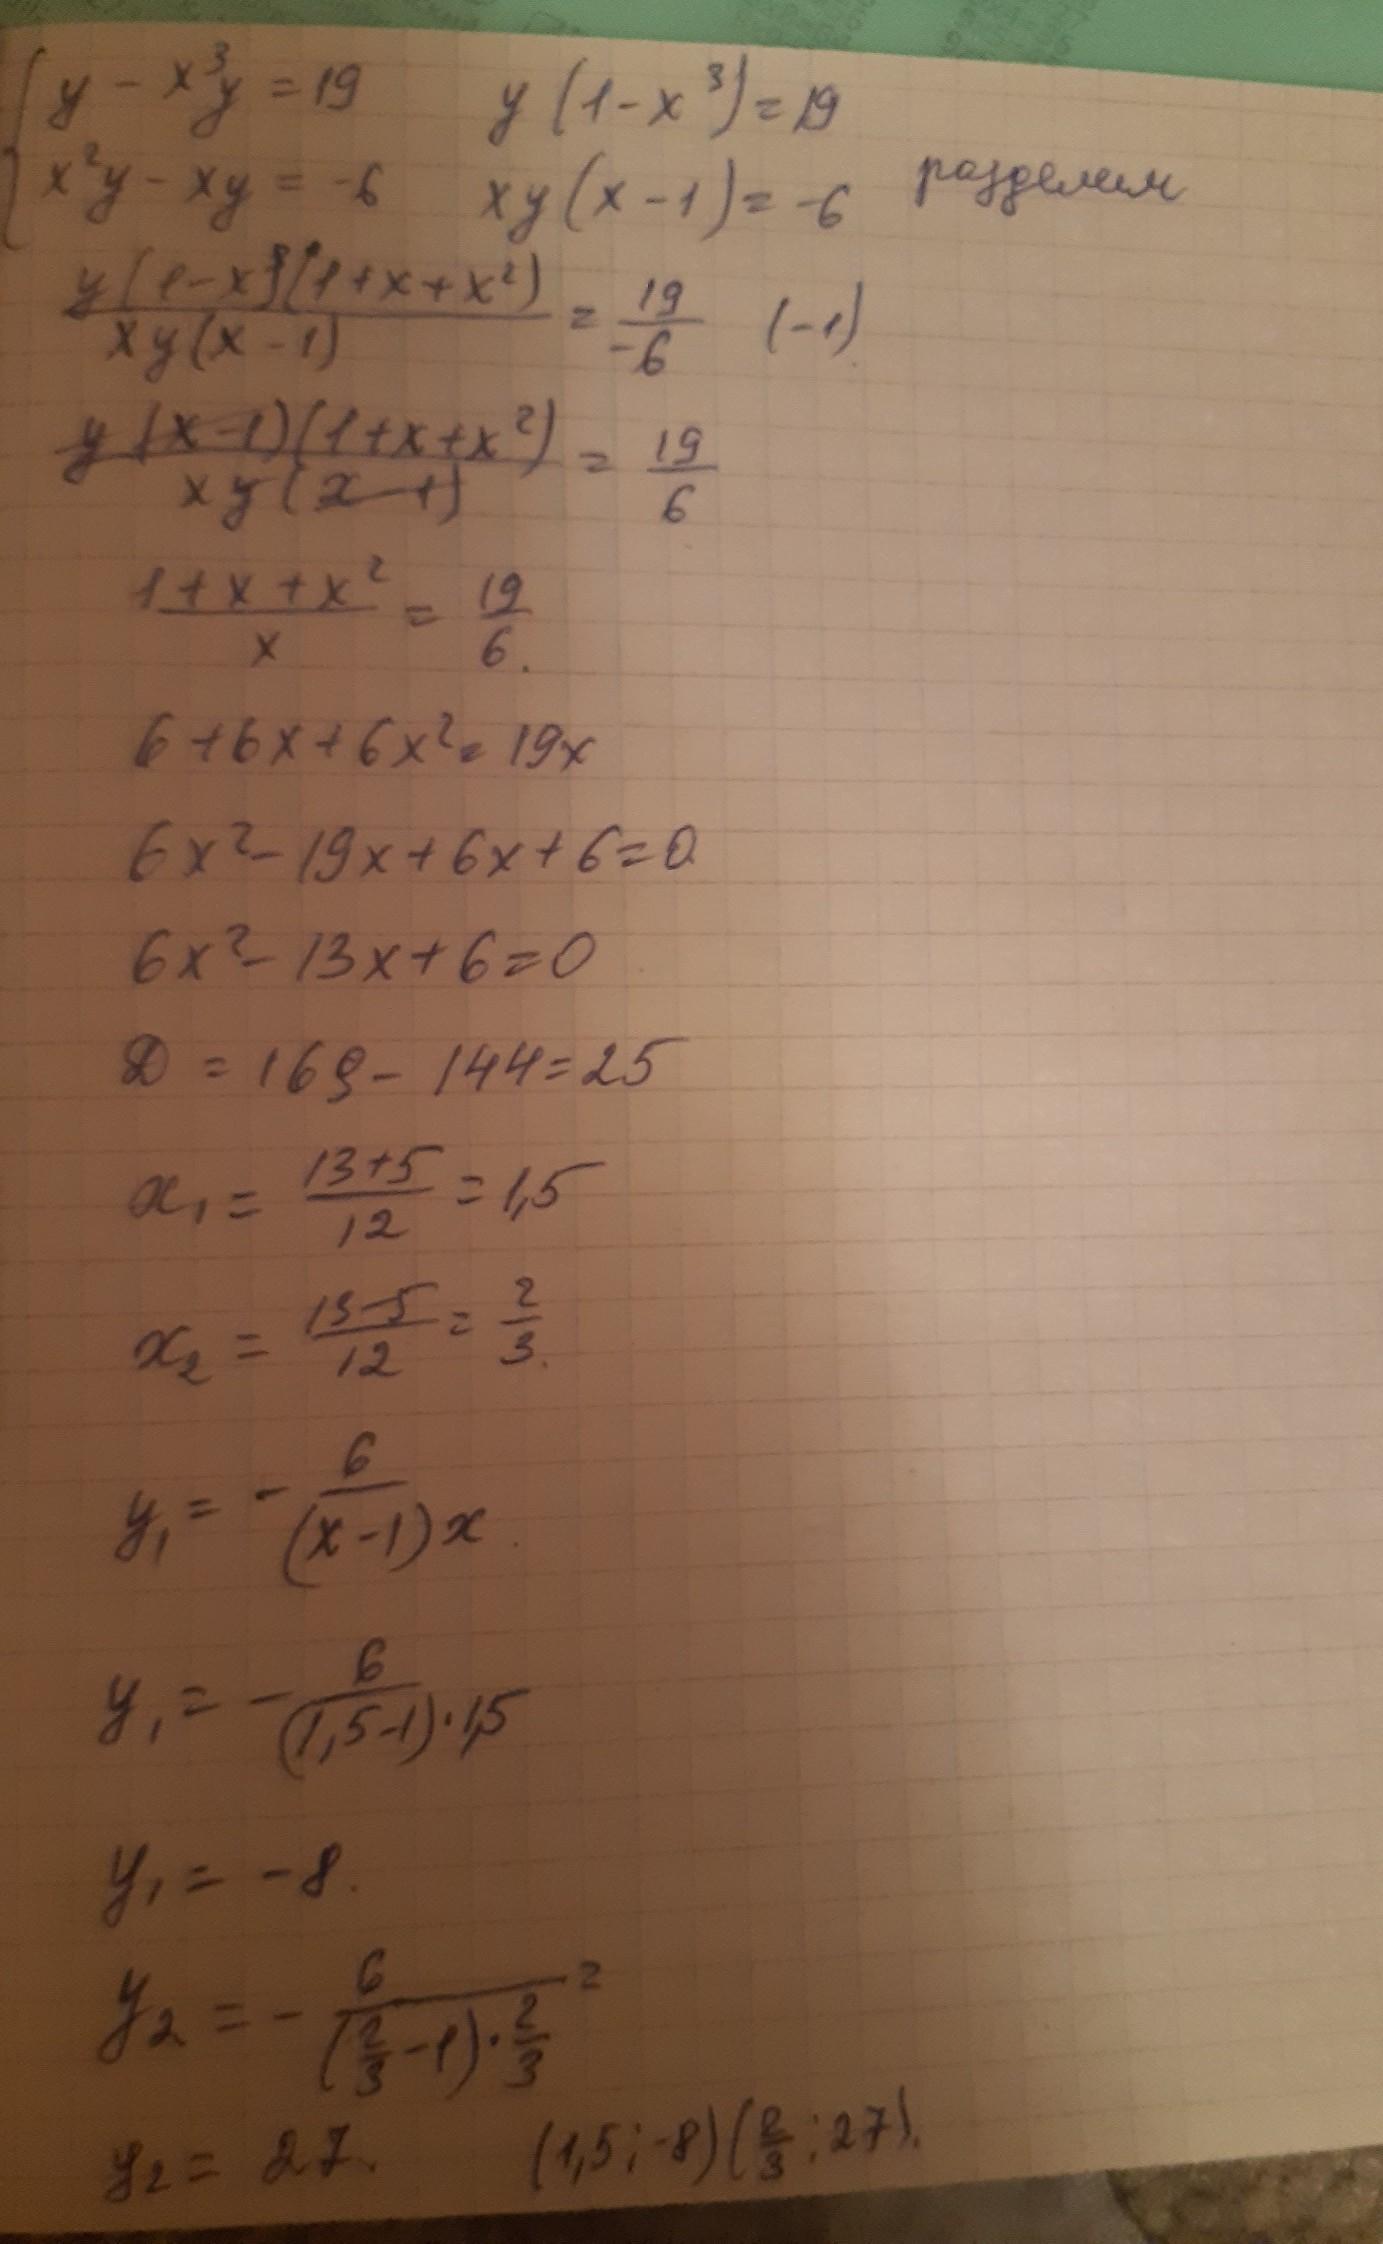 y - x³y = 19 y(1-x³) = 19
x²y - xy = -6 xy(x-1) = -6 разделим
y(1-x)(1+x+x²) / xy(x-1) = 19 / -6 (-1)
y(x-1)(1+x+x²) / xy(x-1) = 19 / 6
1+x+x² / x = 19 / 6.
6+6x+6x² = 19x
6x² - 19x + 6x + 6 = 0
6x² - 13x + 6 = 0
D = 169 - 144 = 25
x₁ = 13+5 / 12 = 1,5
x₂ = 13-5 / 12 = 2/3.
y₁ = - 6 / (x-1)x.
y₁ = - 6 / (1,5-1)·1,5
y₁ = -8.
y₂ = - 6 / (2/3 - 1)·2/3 =
y₂ = 27. (1,5;-8)(2/3;27).